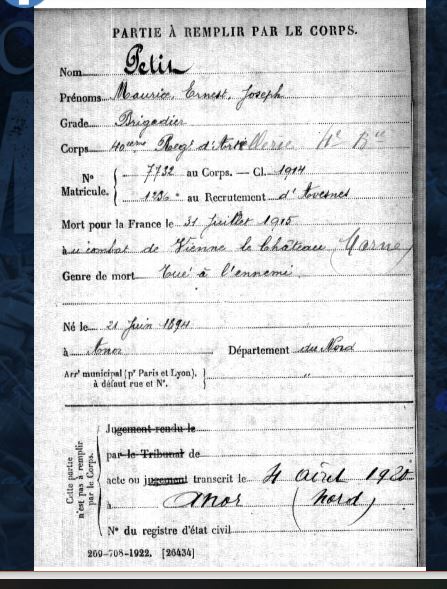 PARTIE À REMPLIR PAR LE CORPS.
Nom Petit
Prénoms Maurice, Ernest, Joseph
Grade Brigadier
Corps 40ème Reg! d'Artillerie 4e Bie
N° Matricule. { 7732 au Corps. — Cl. 1914
1236 au Recrutement d'Avesnes
Mort pour la France le 31 juillet 1915
à au combat de Vienne le Château (Marne)
Genre de mort Tué à l'ennemi
Né le 21 Juin 1894
à Anor Département du Nord
Arrt municipal (pr Paris et Lyon), à défaut rue et N°. } "
Cette partie n'est pas à remplir par le Corps.
Jugement rendu le
par le Tribunal de
acte ou jugement transcrit le 4 Avril 1920
à Anor (Nord)
N° du registre d'état civil
269-708-1922. [26434]